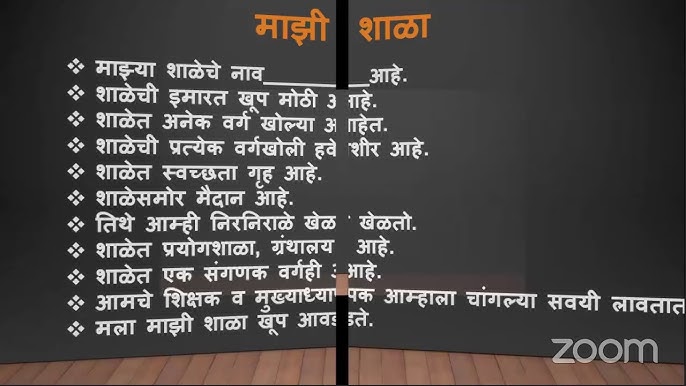 माझी शाळा
❖ माझ्या शाळेचे नाव__________आहे.
❖ शाळेची इमारत खूप मोठी आहे.
❖ शाळेत अनेक वर्ग खोल्या आहेत.
❖ शाळेची प्रत्येक वर्गखोली हवेशीर आहे.
❖ शाळेत स्वच्छता गृह आहे.
❖ शाळेसमोर मैदान आहे.
❖ तिथे आम्ही निरनिराळे खेळ खेळतो.
❖ शाळेत प्रयोगशाळा, ग्रंथालय आहे.
❖ शाळेत एक संगणक वर्गही आहे.
❖ आमचे शिक्षक व मुख्याध्यापक आम्हाला चांगल्या सवयी लावतात
❖ मला माझी शाळा खूप आवडते.
zoom